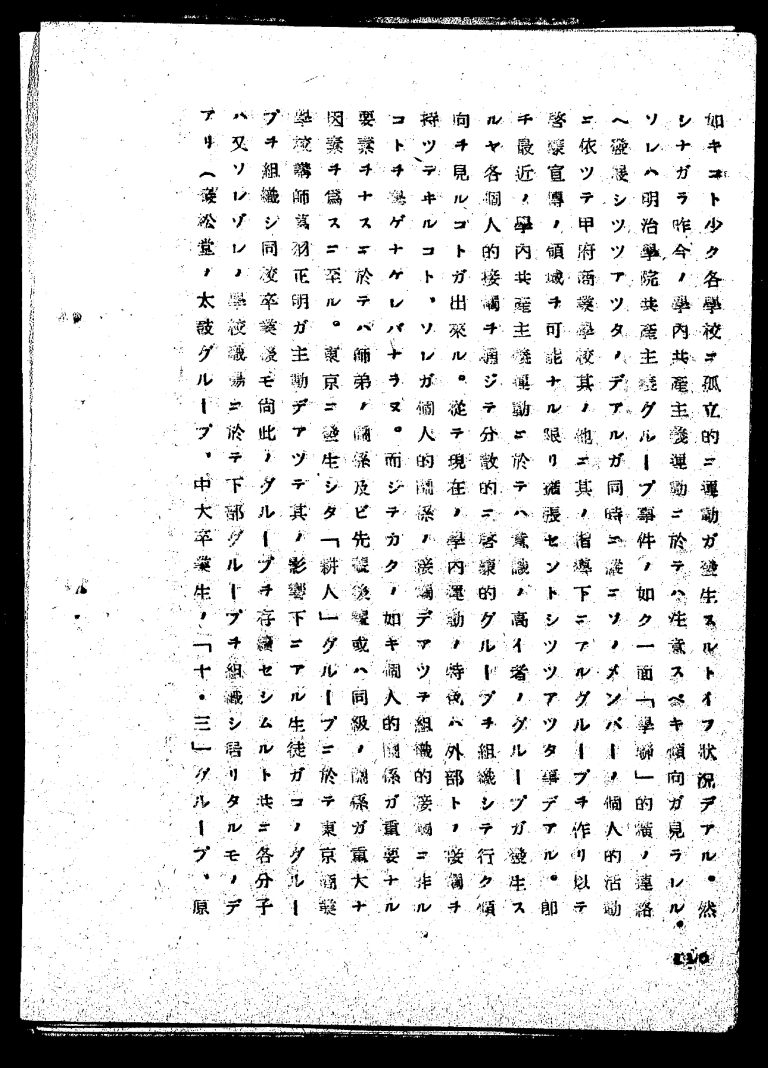 如キコト少ク各學校ニ孤立的ニ運動ガ發生スルトイフ状況デアル。然
シナガラ昨今ノ學內共產主義運動ニ於テハ注意スベキ傾向ガ見ラレル。
ソレハ明治學院共產主義グループ事件ノ如ク一面「學聯」的橫ノ連絡
ヘ發展シツツアツタノデアルガ同時ニ議ニソノメンバーノ個人的活動
ニ依ツテ甲府商業學校其ノ他ニ其ノ指導下ニアルグループヲ作リ以テ
啓蒙宣傳ノ領域ヲ可能ナル限リ擴張セントシツツアツタ事デアル。卽
チ最近ノ學內共產主義運動ニ於テハ意識ノ高イ者ノグループガ發生ス
ルヤ各個人的接觸ヲ通ジテ分散的ニ啓蒙的グループヲ組織シテ行ク傾
向ヲ見ルコトガ出來ル。從テ現在ノ學內運動ノ特徵ハ外部トノ接觸ヲ
持ツテヰルコト、ソレガ個人的關係ノ接觸デアツテ組織的接觸ニ非ル
コトヲ擧ゲナケレバナラヌ。而シテカクノ如キ個人的關係ガ重要ナル
要素ヲナスニ於テハ師弟ノ關係及ビ先輩後輩或ハ同級ノ關係ガ重大ナ
因素ヲ爲スニ至ル。東京ニ發生シタ「耕人」グループニ於テ東京商業
學校講師 羽正明ガ主動デアツテ其ノ影響下ニアル生徒ガコノグルー
プヲ組織シ同校卒業後モ尙此ノグループヲ存續セシムルト共ニ各分子
ハ又ソレゾレノ學校職場ニ於テ下部グループヲ組織シ居リタルモノデ
アリ(松堂ノ太鼓グループ、中大卒業生ノ「十・三」グループ、原
110